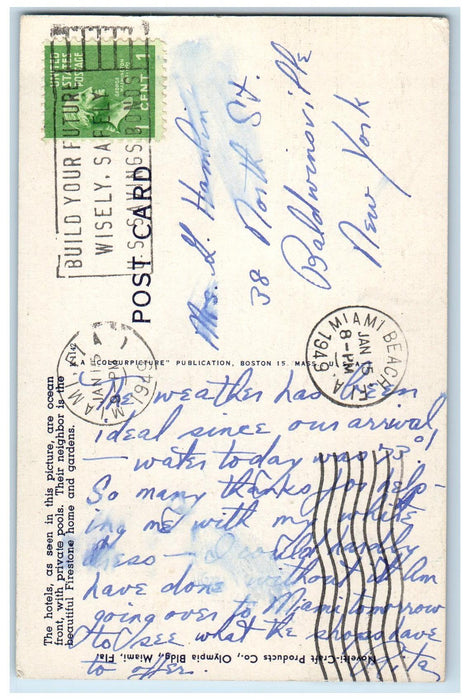 UNITED
STATES
POSTAGE
1
CENT
BUILD YOUR FUTURE
WISELY, SAFELY
U.S. SAVINGS BONDS
POST CARD
Mrs. L. Hamlin
38 North St.
Baldwinsville
New York
MIAMI BEACH, FLA.
JAN 15
8-PM
1949
MIAMI
JAN 15
PM
1949
A "COLOURPICTURE" PUBLICATION, BOSTON 15, MASS.
The hotels, as seen in this picture, are ocean
front, with private pools. Their neighbor is the
beautiful Firestone home and gardens.
The weather has been
ideal since our arrival
— water today was 73°!
So many thanks for help-
ing me with my white
dress — I could hardly
have done without it. Im
going over to Miami tomorrow
to see what the shops have
to offer. Rita
Novelti-Craft Products Co., Olympia Bldg., Miami, Fla.